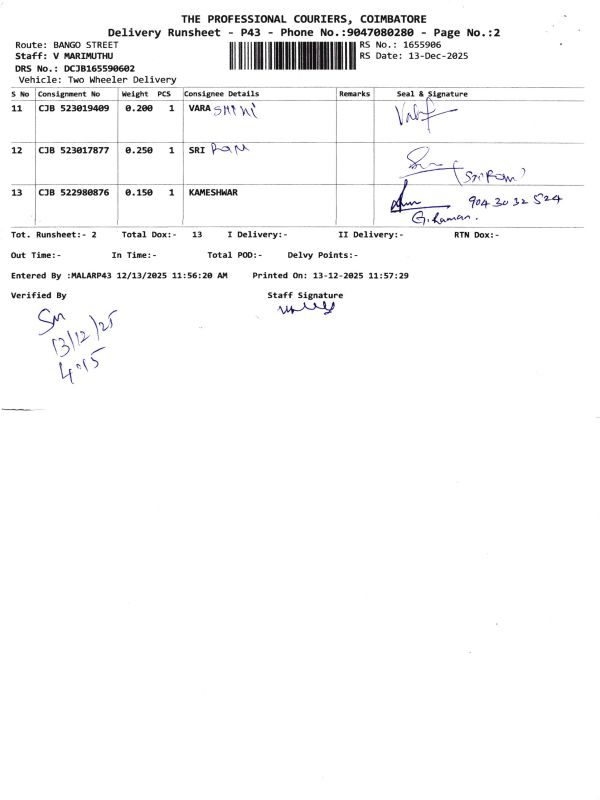 THE PROFESSIONAL COURIERS, COIMBATORE
Delivery Runsheet - P43 - Phone No.:9047080280 - Page No.:2
Route: BANGO STREET
RS No.: 1655906
Staff: V MARIMUTHU
RS Date: 13-Dec-2025
DRS No.: DCJB165590602
Vehicle: Two Wheeler Delivery
S No Consignment No Weight PCS Consignee Details Remarks Seal & Signature
11 CJB 523019409 0.200 1 VARA
12 CJB 523017877 0.250 1 SRI RAM
(Sri Ram)
13 CJB 522980876 0.150 1 KAMESHWAR 904 30 32 524
G. Raman.
Tot. Runsheet:- 2 Total Dox:- 13 I Delivery:- II Delivery:- RTN Dox:-
Out Time:- In Time:- Total POD:- Delvy Points:-
Entered By :MALARP43 12/13/2025 11:56:20 AM Printed On: 13-12-2025 11:57:29
Verified By Staff Signature
13/12/25